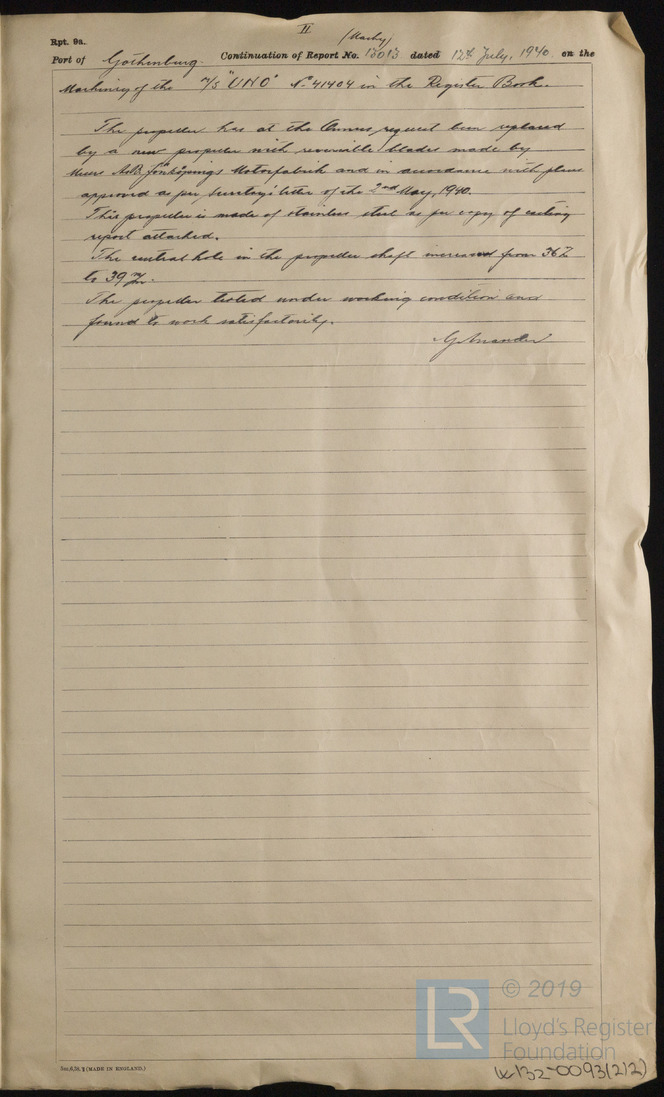 II
(Machy)
Rpt. 9a.
Port of Gothenburg. Continuation of Report No. 13013 dated 12th July, 1940 on the
Machinery of the M/S "UNO" No 41404 in the Register Book.
The propeller has at the Owners request been replaced
by a new propeller with reversible blades made by
Messrs A.B. Jönköpings Motorfabrik and in accordance with plans
approved as per Secretary's letter of the 2nd May, 1940.
This propeller is made of stainless steel as per copy of casting
report attached.
The central hole in the propeller shaft increased from 36 %
to 39 %.
The propeller tested under working condition and
found to work satisfactorily.
5m,6,38, (MADE IN ENGLAND.)
© 2019
LR
Lloyd's Register
Foundation
W132-0093(2/2)